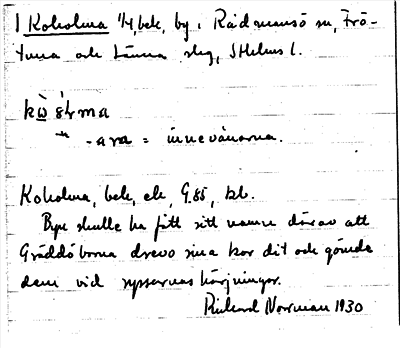 1 Koholma 1/4, bek, by i Rådmansö sn, Frö-
tuna och Länna slg, Sthlms l.
-ara = innevånarna.
Koholma, bek, ek, G.85, bl.
Byn skulle ha fått sitt namn därav att
Gräddöborna drevo sina kor dit och gömde
dem vid ryssarnas härjningar.
Rickard Norrman 1930